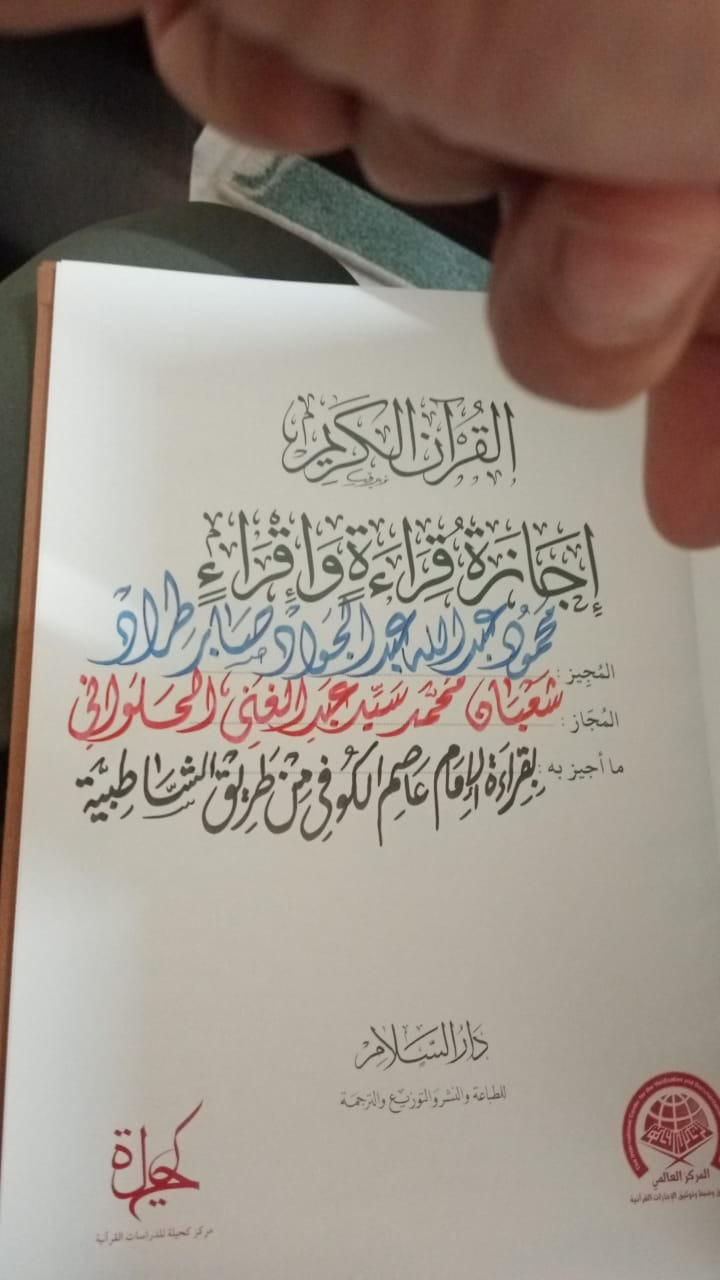 القُرآن الكَرِيم
إِجَازَة قُرِاءَةٍ وَإِقْرَاءٍ
المُجِيز : محمود عبد الله عبد الجواد صابر طراد
المُجَاز : شعبان محمد سيد عبد الغني الحلواني
ما أجيز به : بقراءة الإمام عاصم الكوفي من طريق الشاطبية
دَارُ السَّلَام
للطباعة والنشر والتوزيع والترجمة
كحيلة
مركز كحيلة للدراسات القرآنية
المركز العالمي
وضبط وتوثيق الإجازات القرآنية